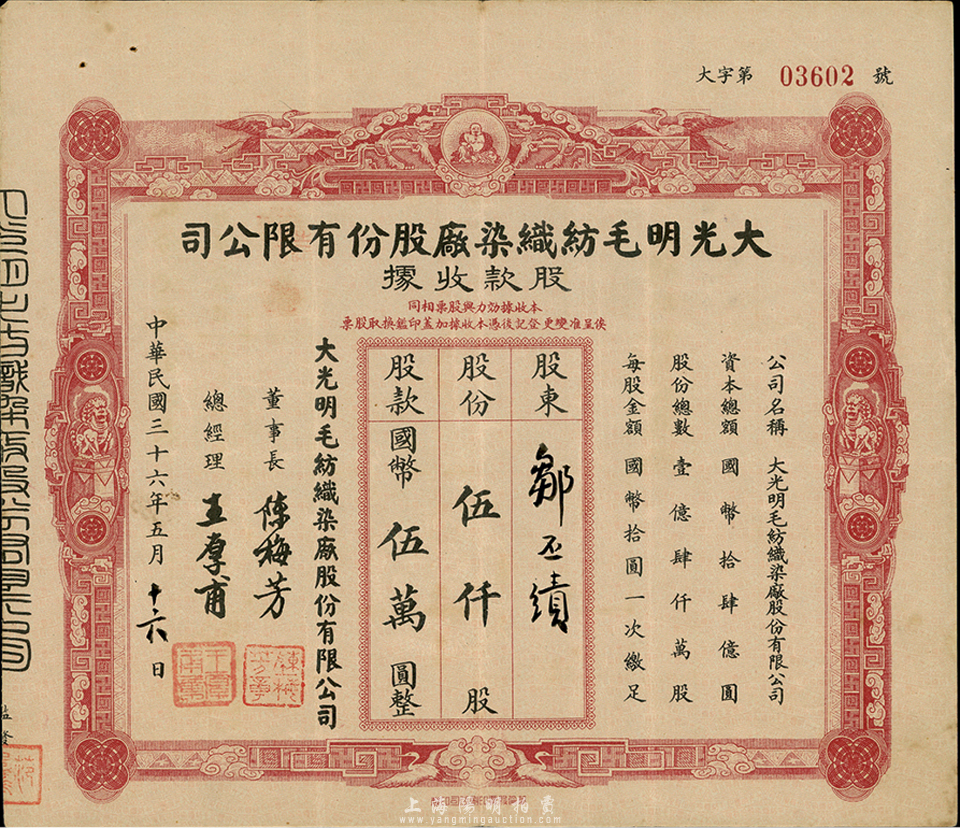 大字第 03602 號
大光明毛紡織染廠股份有限公司
股款收據
本收據効力與股票相同
俟呈准變更登記後憑本收據加蓋印鑑換取股票
公司名稱 大光明毛紡織染廠股份有限公司
資本總額 國幣拾肆億圓
股份總數 壹億肆仟萬股
每股金額 國幣拾圓一次繳足
股東 鄒丕績
股份 伍仟股
股款 國幣伍萬圓整
大光明毛紡織染廠股份有限公司
董事長 陳梅芳
總經理 王厚甫
中華民國三十六年五月十六日
上海陽明拍賣
www.yangmingauction.com